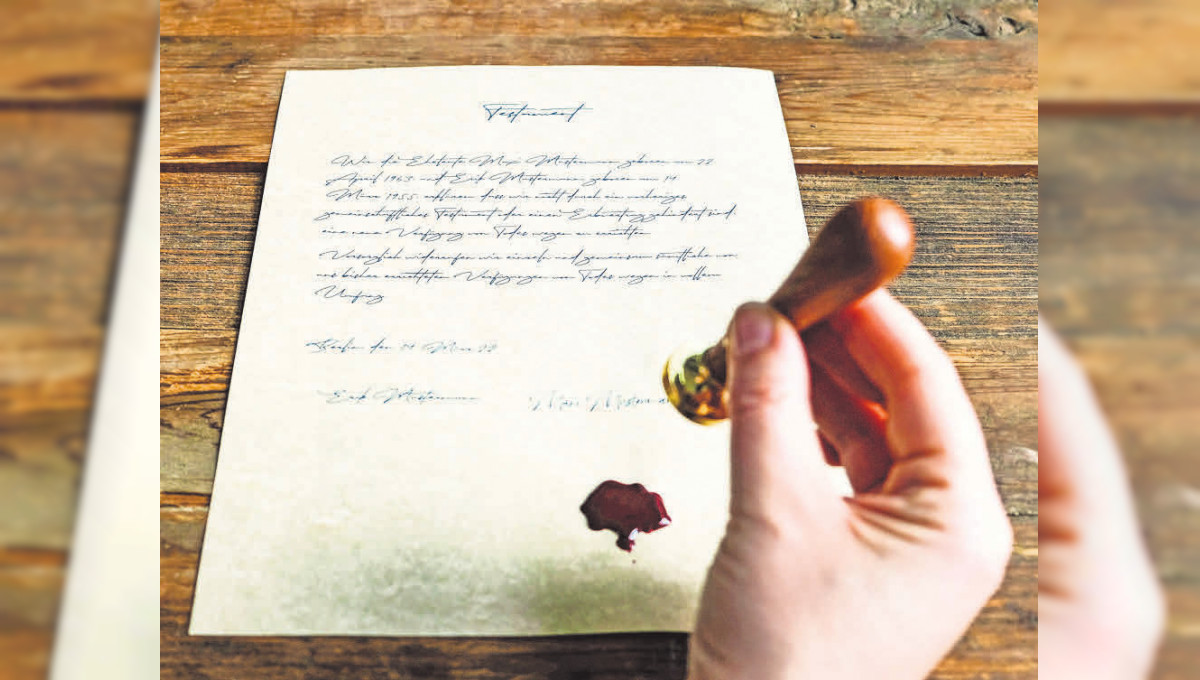 Testament
Wir die Eheleute Maxi Mustermann geboren am 22.
April 1963 und Erik Mustermann geboren am 14.
März 1955 erklären dass wir nicht durch ein vorheriges
gemeinschaftliches Testament oder einen Erbvertrag gehindert sind,
eine neue Verfügung von Todes wegen zu errichten.
Vorsorglich widerrufen wir einzeln und gemeinsam
uns bisher errichteten Verfügungen von Todes wegen in vollem
Umfang
den 14 März 22
Erik Mustermann